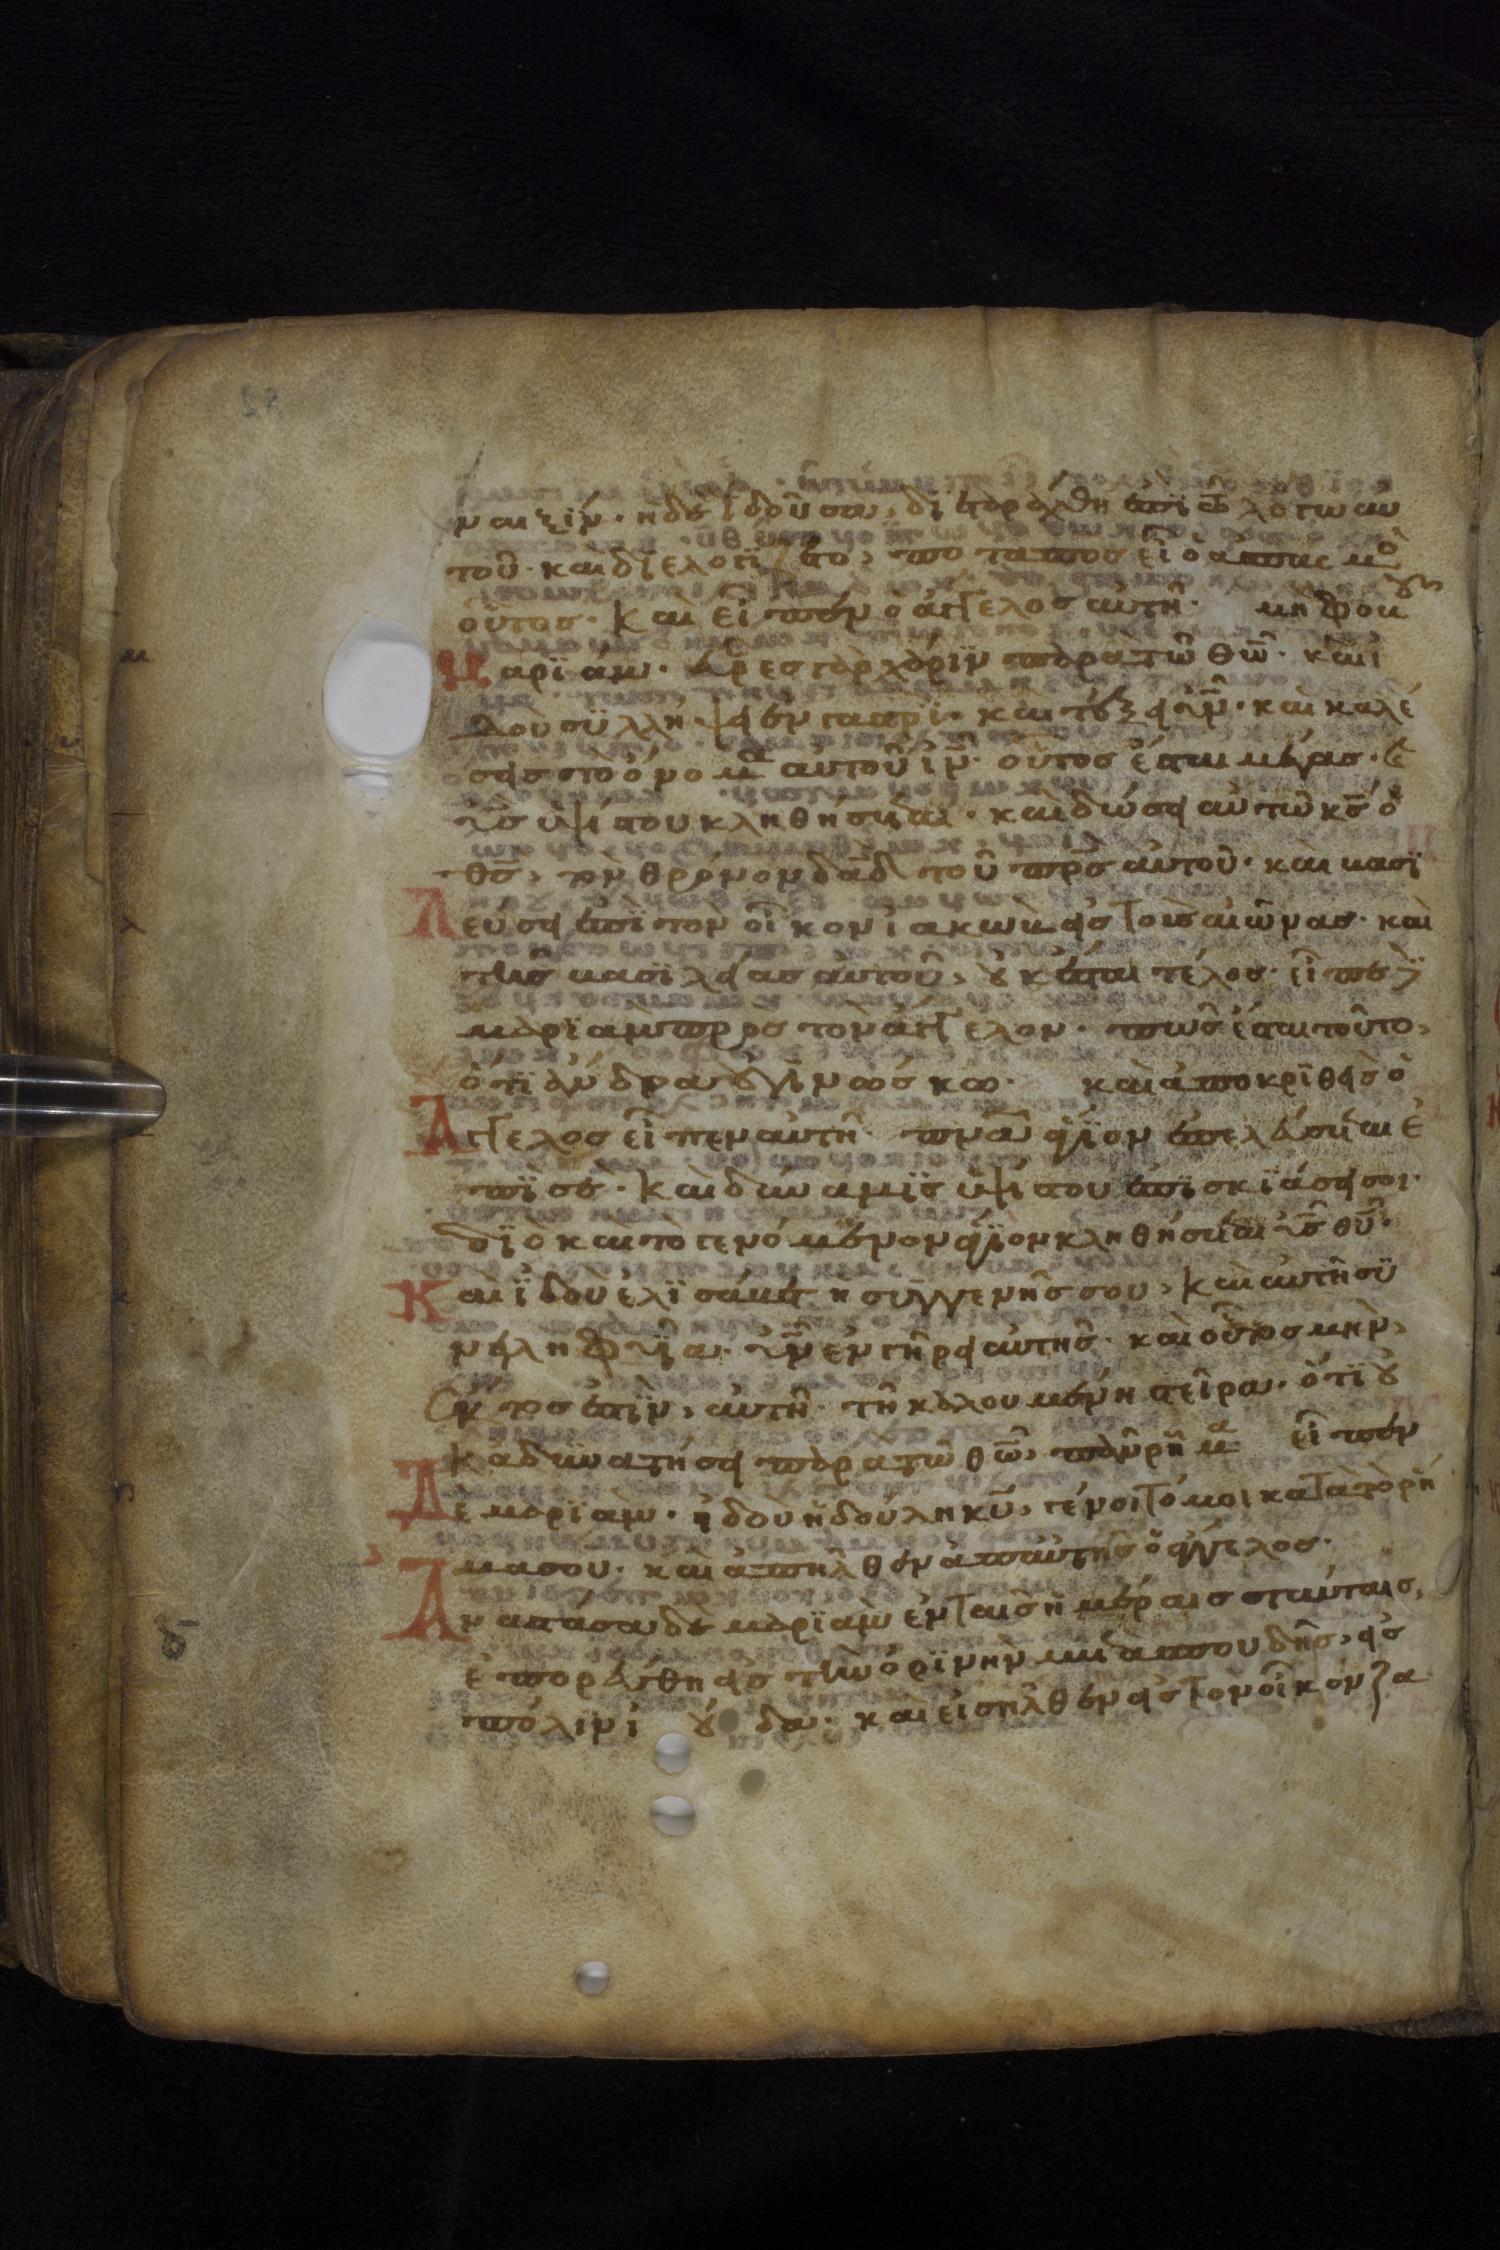 ναιξίν· ἡδὲ ἰδοῦσα, διεταράχθη ἐπι τῶ λόγω αυ
τοῦ· και διελογϊζετο, ποταπος εἴ ὁ ασπασμὸ
οὗτος· Και εἶπεν ὁ ἄγγελος αυτῆ· μὴ φοβοῦ
Μαρϊάμ· εὗρες γὰρ χάριν παρα τῶ θῶ· και ἰ
δου συλλήψη ἐν γαστρι· και τέξη υἱν· και καλέ
σεις το ὄνομα αυτοῦ ἰν· οὗτος ἔσται μέγας· και
υἱς ὑψίστου κληθήσεται· και δώσει αυτῶ κς ὁ
θς, τὸν θρόνον δαδ τοῦ πρς αυτοῦ· και βασϊ
Λεύσει ἐπϊ τον οἶκον ἰακωβ εἰς τους αιῶνας· και
της βασϊλείας αυτοῦ, οὐκ ἔσται τέλος· εἶπε δὲ
μαρϊὰμ προς τον ἄγγελον· πῶς ἔσται τοῦτο,
ὅτϊ ἄνδρα οὐ γϊνώσκω· και ἀποκριθεὶς ὁ
Ἄγγελος εἶπεν αυτῆ· πνα ἅγϊον ἐπελεύσεται ἐ
πϊ σε· Και δύναμϊς ὑψίστου ἐπϊσκϊάσει σοι·
δϊὸ και το γενόμενον ἅγϊον κληθήσεται υἱς θυ·
Και ϊδου ἐλϊσάβετ ἡ συγγενής σου, Και αυτὴ συ
νειληφυῖα· υἱν ἐν γήρει αυτῆς· και οὗτος μὴν,
ἕκτος ἐστϊν, αυτῆ· τῆ καλουμένη στεῖρα· ὅτϊ οὐ
κ ἀδϋνατήσει παρα τῶ θῶ, πᾶν ρῆμα εἶπεν
Δε μαρϊάμ· ἡδοὺ ἡ δούλη κυ, γένοιτό μοι κατα το ρῆ
μα σου· και ἀπῆλθεν ἀπ' αυτῆς ὁ ἄγγελος·
Αναστᾶσα δε μαρϊαμ ἐν ταις ἡμέραις ταύταις,
ἐπορεύθη εἰς την ὀρϊνὴν μετα σπουδῆς, εἰς
πόλιν ἰούδα· και εἰσῆλθεν εἰς τον οἶκον ζα